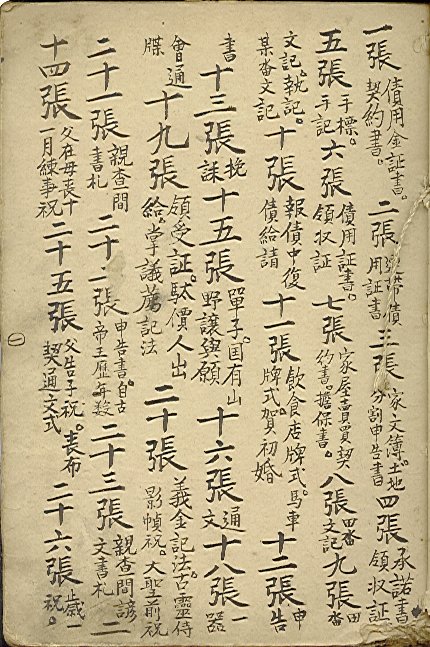 一張 債用金証書。契約書。 二張 連帶債用証書 三張 家文簿。土地分割申告書 四張 承諾書領収証
五張 手標。手記 六張 債用証書。領収証 七張 家屋賣買契約書。擔保書。 八張 田畓文記 九張 田畓
文記。執記。某畓文記 十張 報債中復債給請 十一張 飲食店牌式。馬車牌式賀初婚 十二張 申告
書 十三張 挽 十五張 單子。国有山野讓與願 十六張 通文 十八張 一器
會通牒 十九張 領受証。駄價人出給。掌議薦記法 二十張 義金記法。古靈侍影幀祝。大聖前祝
二十一張 親查間書札 二十二張 申告書。自古帝王歷年数 二十三張 親查間諺文書札 二
十四張 父在母喪十一月練事祝 二十五張 父告子祝。喪布契通文式 二十六張 歲一祝。
(一)